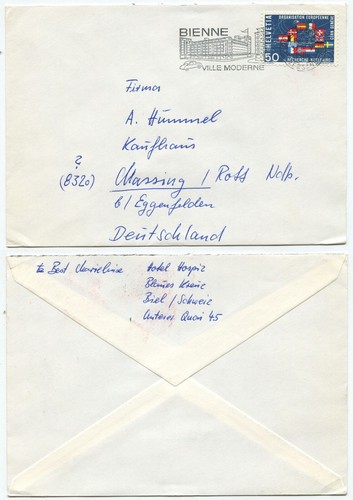 BIENNE
VILLE MODERNE
HELVETIA
50
ORGANISATION EUROPEENNE
Firma
A. Hummel
Kaufhaus
?
(8320) Massing / Rott Ndb.
b/ Eggenfelden
Deutschland
Hotel Hospiz
Blaues Kreuz
Biel / Schweiz
Unterer Quai 45